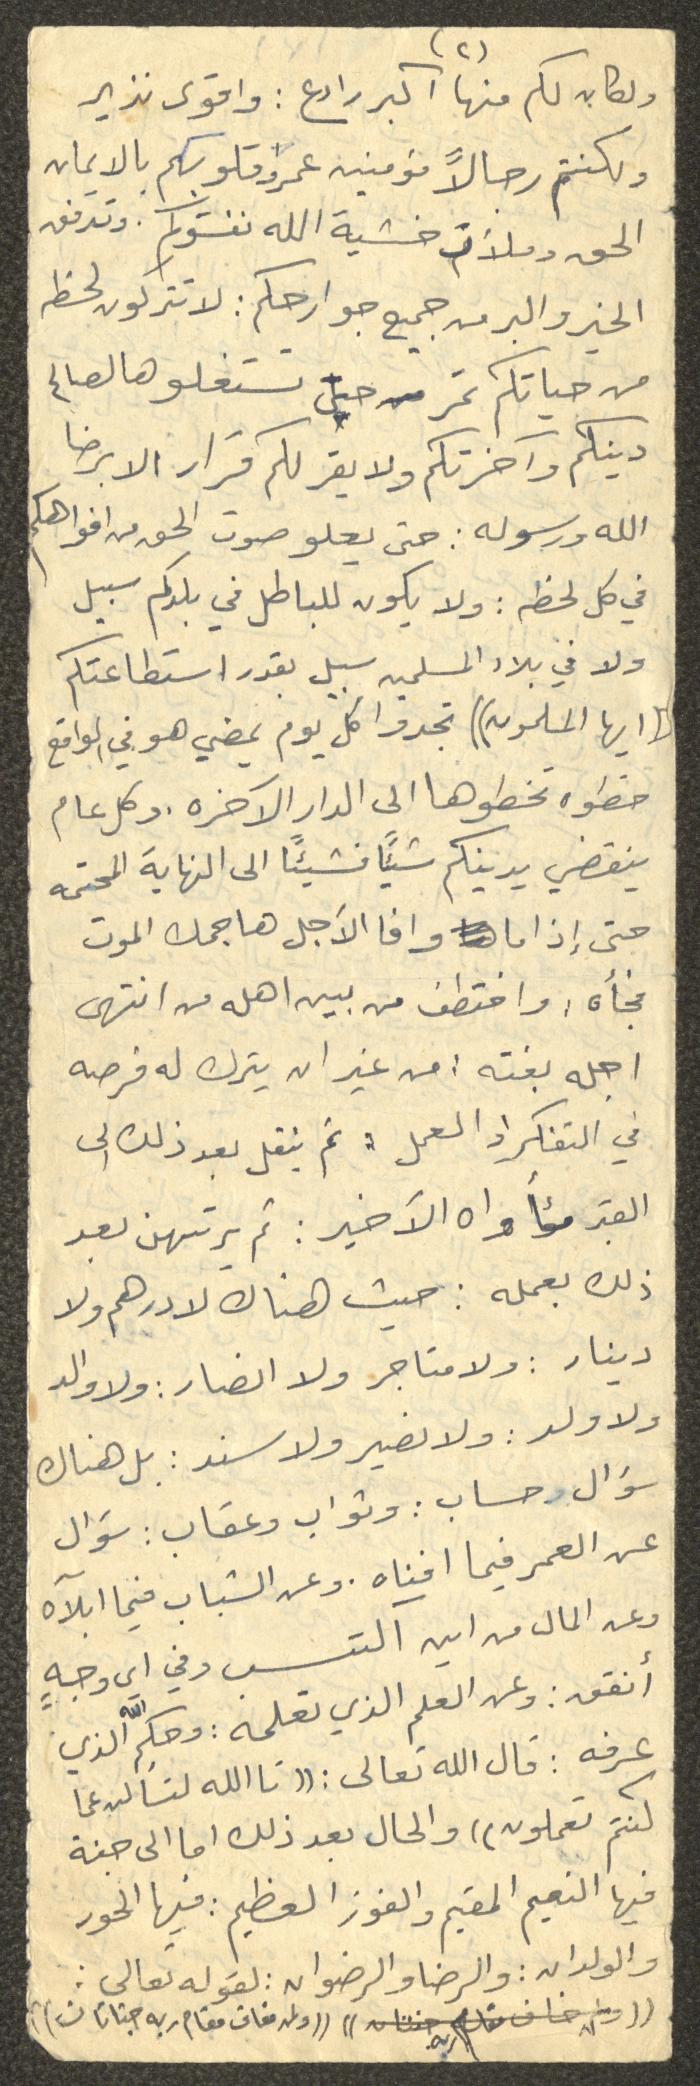 (٢)
ولكان لكم منها أكبر رادع : واقوى نذير
ولكنتم رجالاً مؤمنين عمروا قلوبكم بالايمان
الحق وملأت خشية الله نفوسكم . وتدفق
الخير والبر من جميع جوارحكم : لا تتركون لحظه
من حياتكم تمر من حين تستغلوها لصالح
دينكم وآخرتكم ولا يقر لكم قرار الا برضا
الله ورسوله : حتى يعلو صوت الحق من افواهكم
في كل لحظه : ولا يكون للباطل في بلدكم سبيل
ولا في بلاد المسلمين سبيل بقدر استطاعتكم
((ايها المسلمون)) تجدوا كل يوم يمضي هو في الواقع
خطوه تخطوها الى الدار الآخره . وكل عام
ينقضي يدينكم شيئًا فشيئًا الى النهاية المحتمه
حتى إذا ما وافا الأجل هاجمك الموت
فجأه ، واختطف من بين اهله من انتهى
اجله بغته : من غير ان يترك له فرصه
في التفكر او العمل : ثم ينقل بعد ذلك الى
القبر مأواه الأخير : ثم يرتهن بعد
ذلك بعمله : حيث هناك لا درهم ولا
دينار : ولا متاجر ولا انصار : ولا والد
ولا ولد : ولا نصير ولا سند : بل هناك
سؤال وحساب : وثواب وعقاب : سؤال
عن العمر فيما افناه . وعن الشباب فيما ابلآه
وعن المال من اين اكتسب وفي اي وجهٍ
أنفق : وعن العلم الذي تعلمه : وحكم الله الذي
عرفه : قال الله تعالى : ((تا الله لتسألن عما
كنتم تعملون)) والحال بعد ذلك اما الى جنة
فيها النعيم المقيم والفوز العظيم : فيها الحور
والولدان : والرضا والرضوان : لقوله تعالى :
((ولمن خاف مقام ربه جنتان)) ((ولمن خاف مقام ربه جنتان))